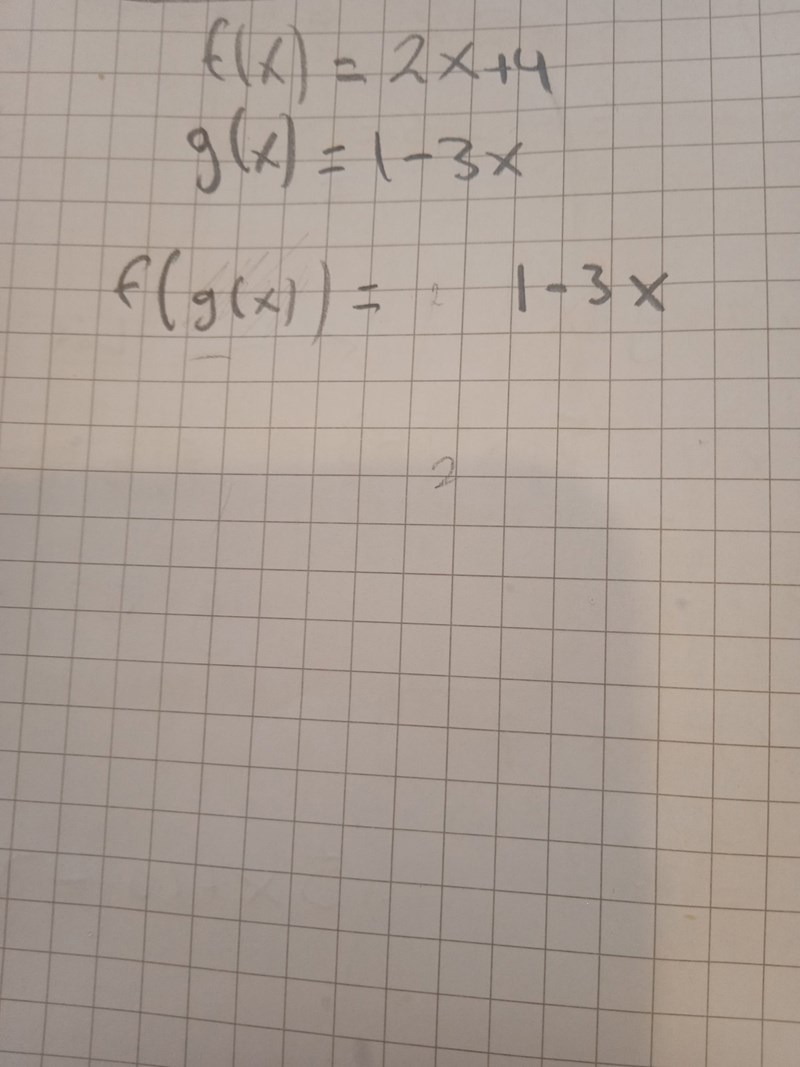 f(x) = 2x+4
g(x) = 1-3x
f(g(x)) = 2 1-3x
2